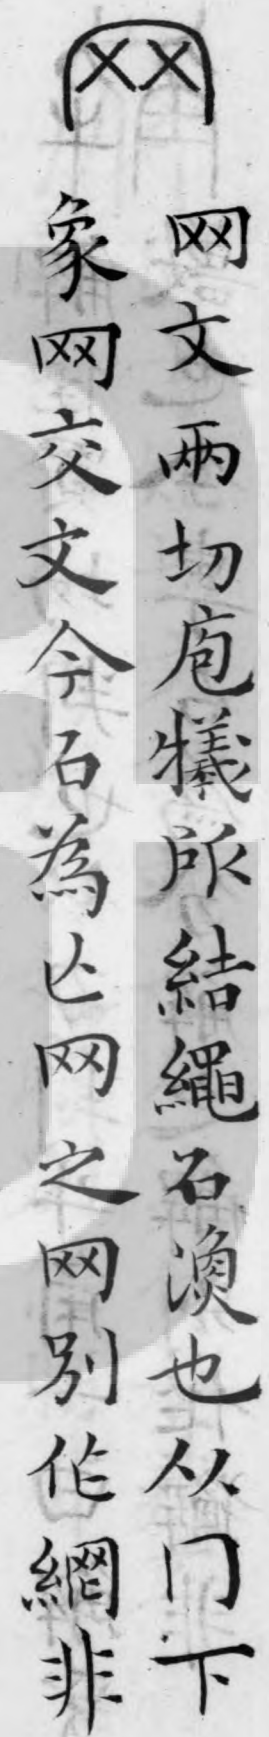 网
网文兩切庖犧所結繩㠯漁也从冂下
象网交文今㠯為亾网之网別作網非